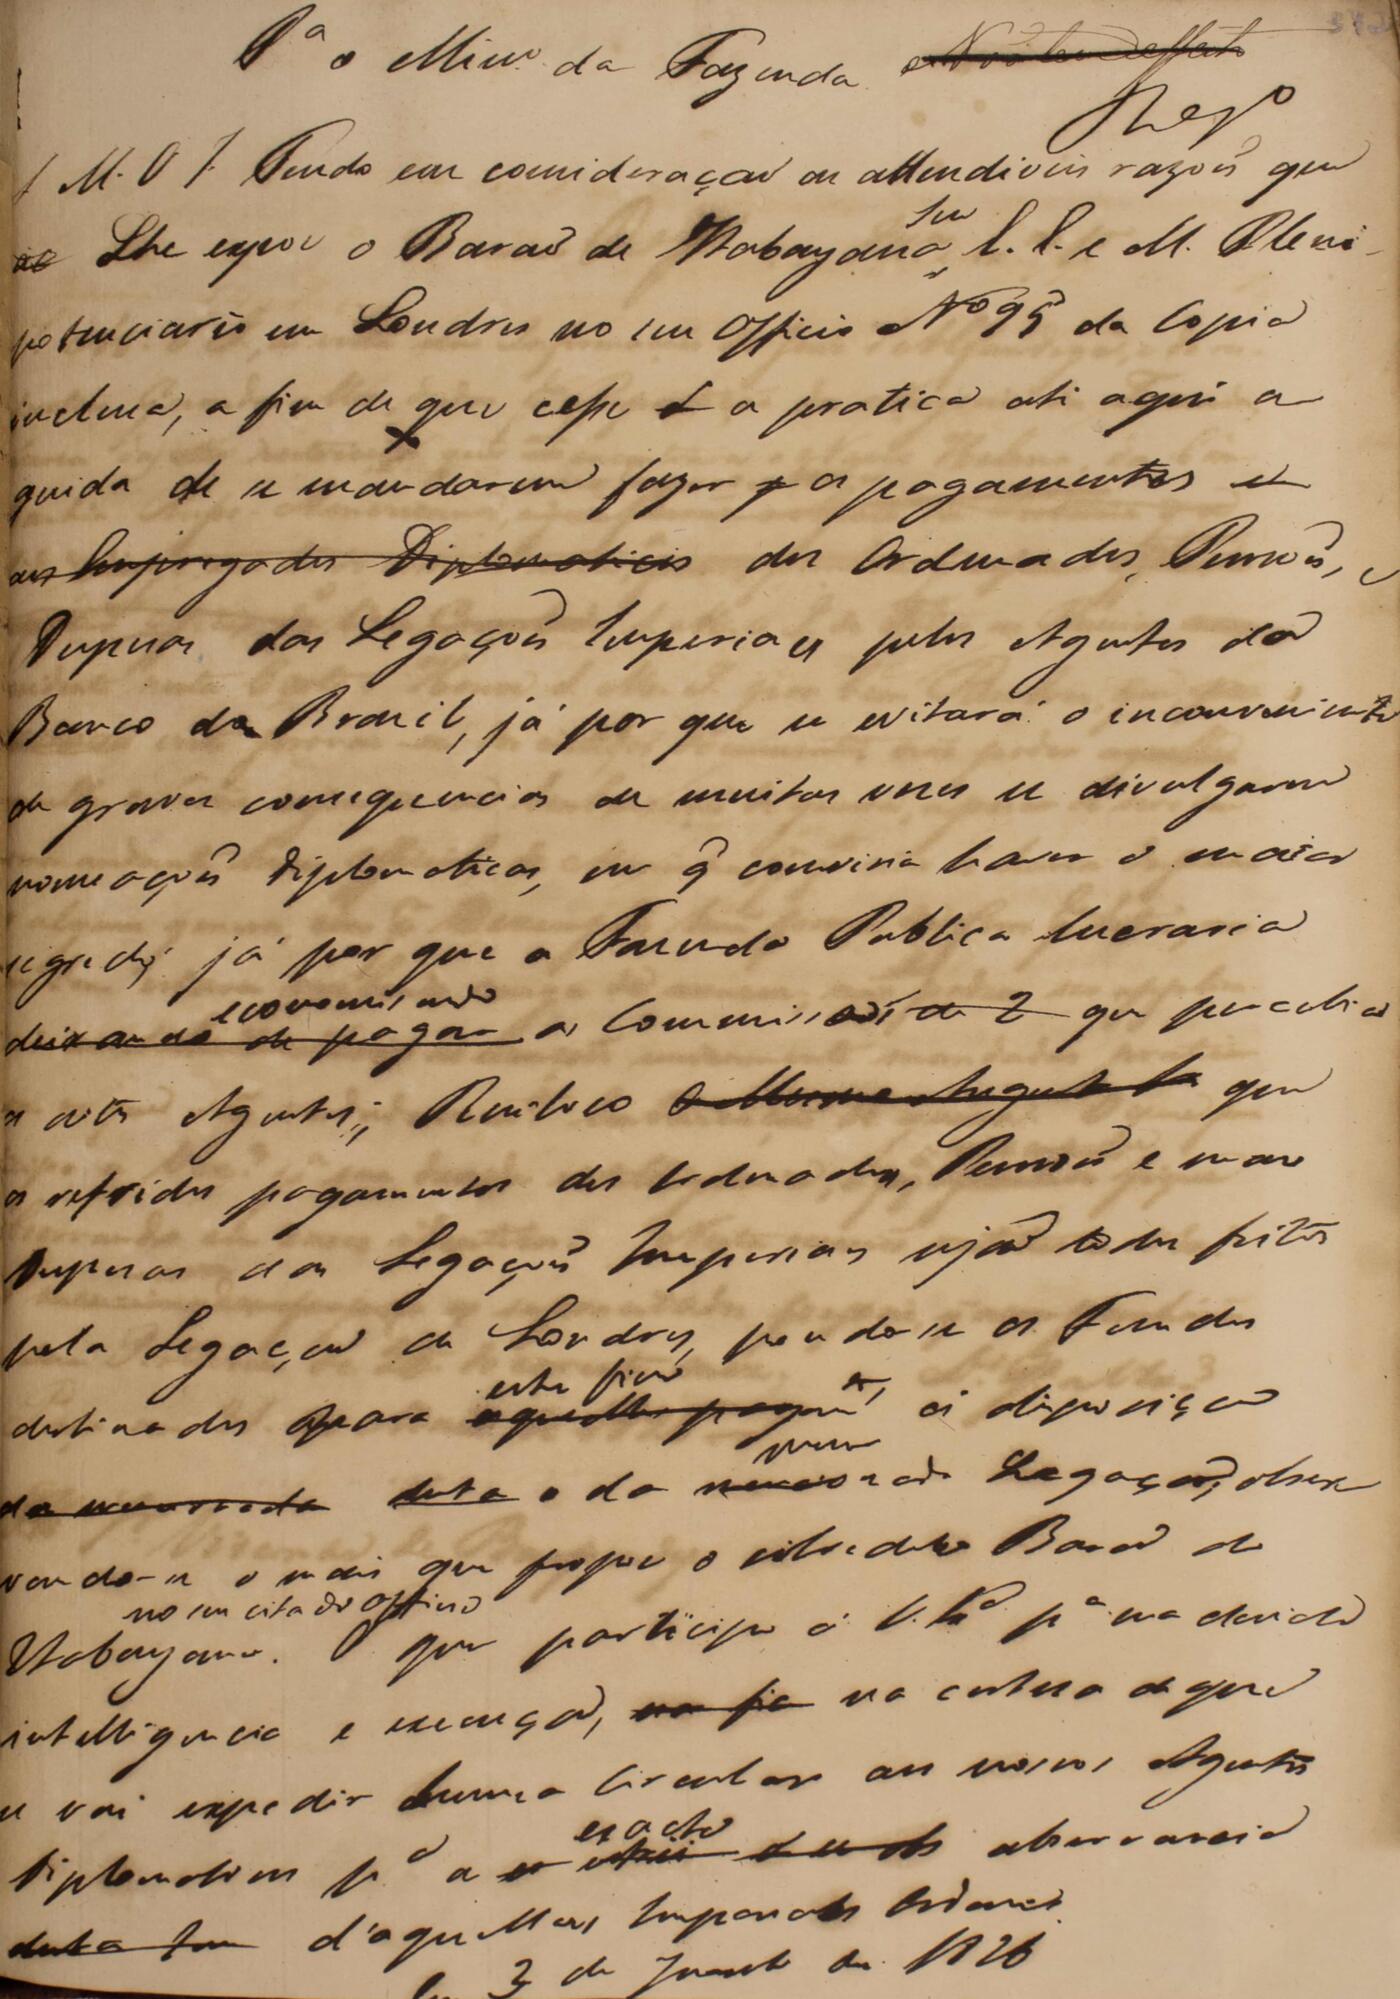 Pª o Minº da Fazenda Não teve effeito
Regº
S. M. O I. Tendo em consideração as attendiveis razoẽs que
Lhe expoz o Baraõ de Itabayana, seu E. E. e M. Pleni-
potenciario em Londres no seu Officio Nº 95 da Copia
inclusa, a fim de que cesse a pratica até aqui se
guida de se mandarem fazer os pagamentos
aos Empregados Diplomaticos dos Ordenados, Pensoẽs, e
Despesas das Legaçoẽs Imperiaes pelos Agentes do
Banco do Brasil, já por que se evitará o inconveniente
de graves consequencias de muitas vezes se divulgarem
nomeaçoẽs Diplomaticas, em q̃ conviria haver o maior
segredo; já por que a Fazenda Publica lucraria
economisando
deixando de pagar as Commissoẽs de 2 que percebiaõ
os ditos Agentes; Resolveo O Mesmo Augusto Sr. que
os referidos pagamentos dos Ordenados, Pensoẽs e mais
Despesas das Legaçoẽs Imperiaes sejaõ todos feitos
pela Legaçaõ de Londres, pondo-se os Fundos
este fim
destinados para aquelles pagamtos, á disposiçaõ
da mencionada desta e da mencionada Legaçaõ, obser-
vando-se o mais que propoz o sobredito Baraõ de
no seu citado Officio
Itabayana. O que participo á V. Exª pª sua devida
intelligencia e execuçaõ, na certeza de que
se vai expedir huma Circular aos nossos Agentes
exacta
Diplomaticos pª a observancia
desta d'aquellas Imperiaes Ordens.
Em 3 de Junho de 1826